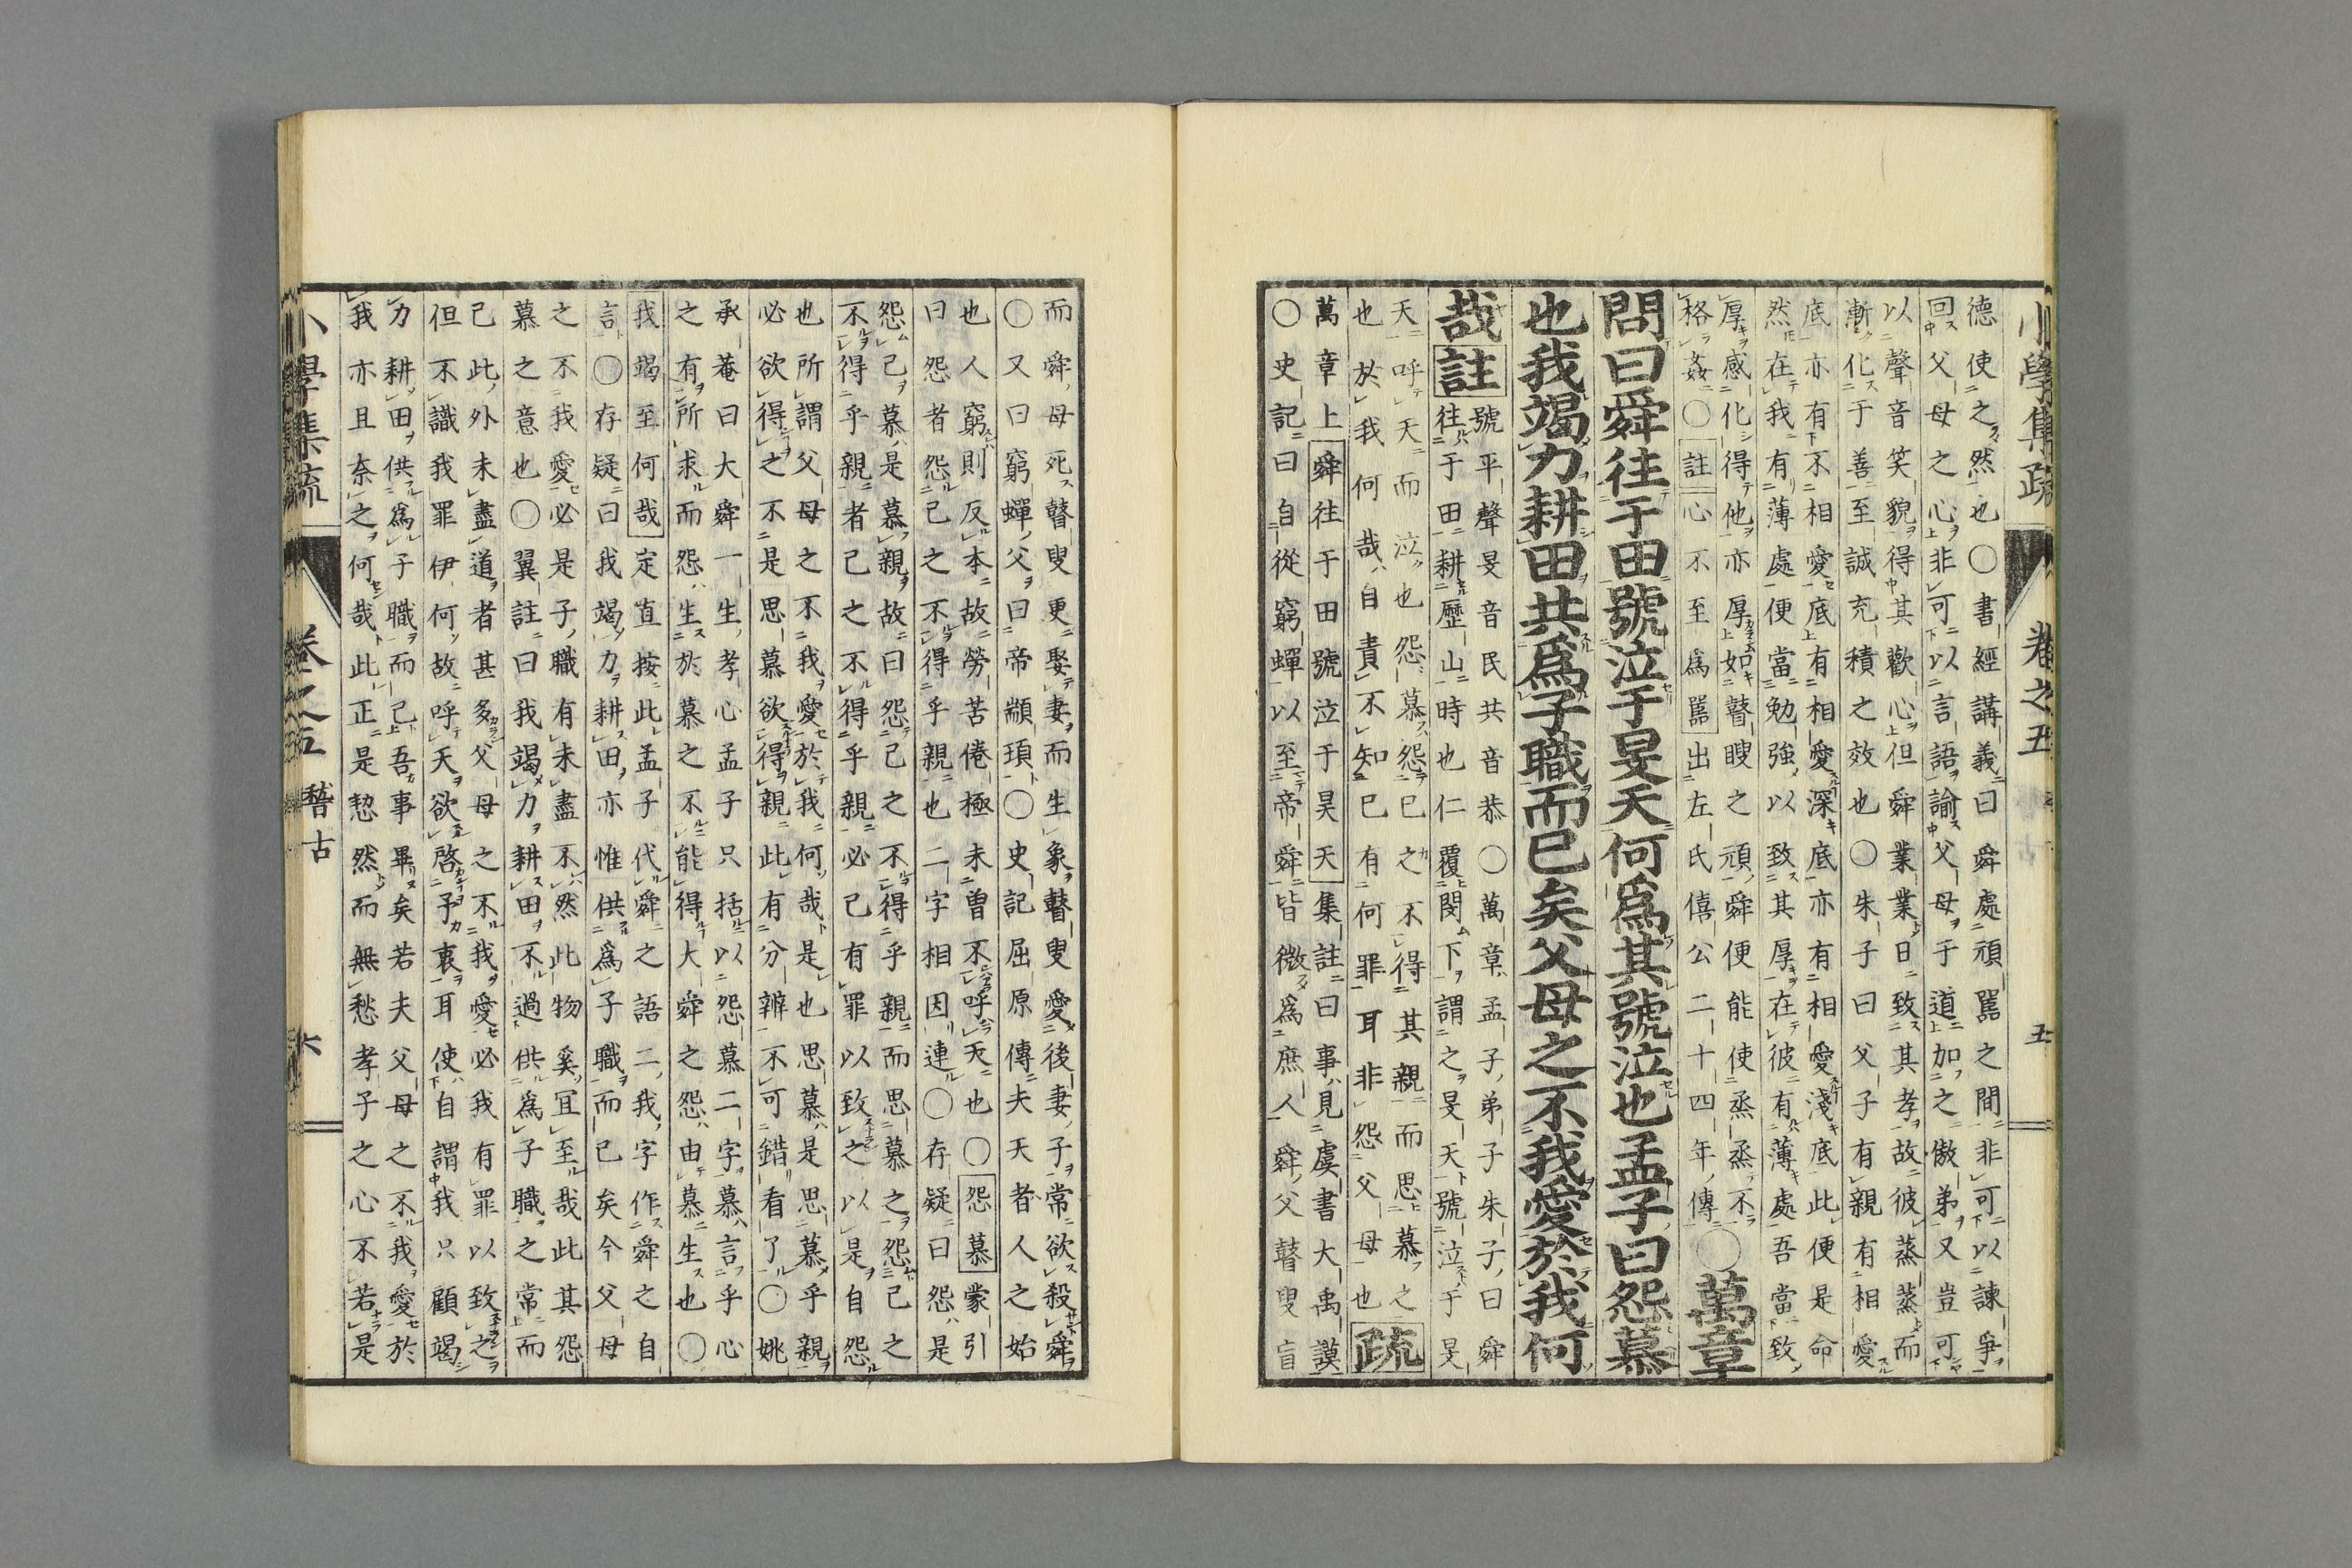 小學集疏 卷之五 五
德使之然也〇書經講義曰舜處頑嚚之間非可以諫爭
回父母之心非可以言語諭父母于道加之傲弟又豈可
以聲音笑貌得其歡心但舜業業日致其孝故彼蒸蒸而
漸化于善至誠充積之效也〇朱子曰父子有親有相愛
底亦有不相愛底有相愛深底亦有相愛淺底此便是命
然在我有薄處便當勉強以致其厚在彼有薄處吾當致
厚感化得他亦厚如瞽瞍之頑舜便能使烝烝不
格姦〇註心不至爲嚚出左氏僖公二十四年傳
〇萬章
問曰舜往于田號泣于旻天何爲其號泣也孟子曰怨慕
也我竭力耕田共爲子職而已矣父母之不我愛於我何
哉註
號平聲旻音民共音恭〇萬章孟子弟子朱子曰舜
往于田耕歷山時也仁覆閔下謂之旻天號泣于旻
天呼天而泣也怨慕怨己之不得其親而思慕之
也於我何哉自責不知己有何罪耳非怨父母也
疏
萬章上舜往于田號泣于昊天集註曰事見虞書大禹謨
〇史記曰自從窮蟬以至帝舜皆微爲庶人舜父瞽叟盲
而舜母死瞽叟更娶妻而生象瞽叟愛後妻子常欲殺舜
〇又曰窮蟬父曰帝顓頊〇史記屈原傳夫天者人之始
也人窮則反本故勞苦倦極未曾不呼天也〇怨慕蒙引
曰怨者怨己之不得乎親也二字相因連〇存疑曰怨是
怨己慕是慕親故曰怨己之不得乎親而思慕之怨己之
不得乎親者己之不得乎親必己有罪以致之以是自怨
也所謂父母之不我愛於我何哉是也思慕是思慕乎親
必欲得之不是思慕欲得親此有分辨不可錯看了〇姚
承菴曰大舜一生孝心孟子只括以怨慕二字慕言乎心
之有所求而怨生於慕之不能得大舜之怨由慕生也〇
我竭至何哉定直按此孟子代舜之語二我字作舜之自
言〇存疑曰我竭力耕田亦惟供爲子職而已矣今父母
之不我愛必是子職有未盡不然此物奚冝至哉此其怨
慕之意也〇翼註曰我竭力耕田不過供爲子職之常而
己此外未盡道者甚多父母之不我愛必我有罪以致之
但不識我罪伊何故呼天欲啓予衷耳使自謂我只顧竭
力耕田供爲子職而已吾事畢矣若夫父母之不我愛於
我亦且奈之何哉此正是恝然而無愁孝子之心不若是
小學集疏 卷之五 稽古 六